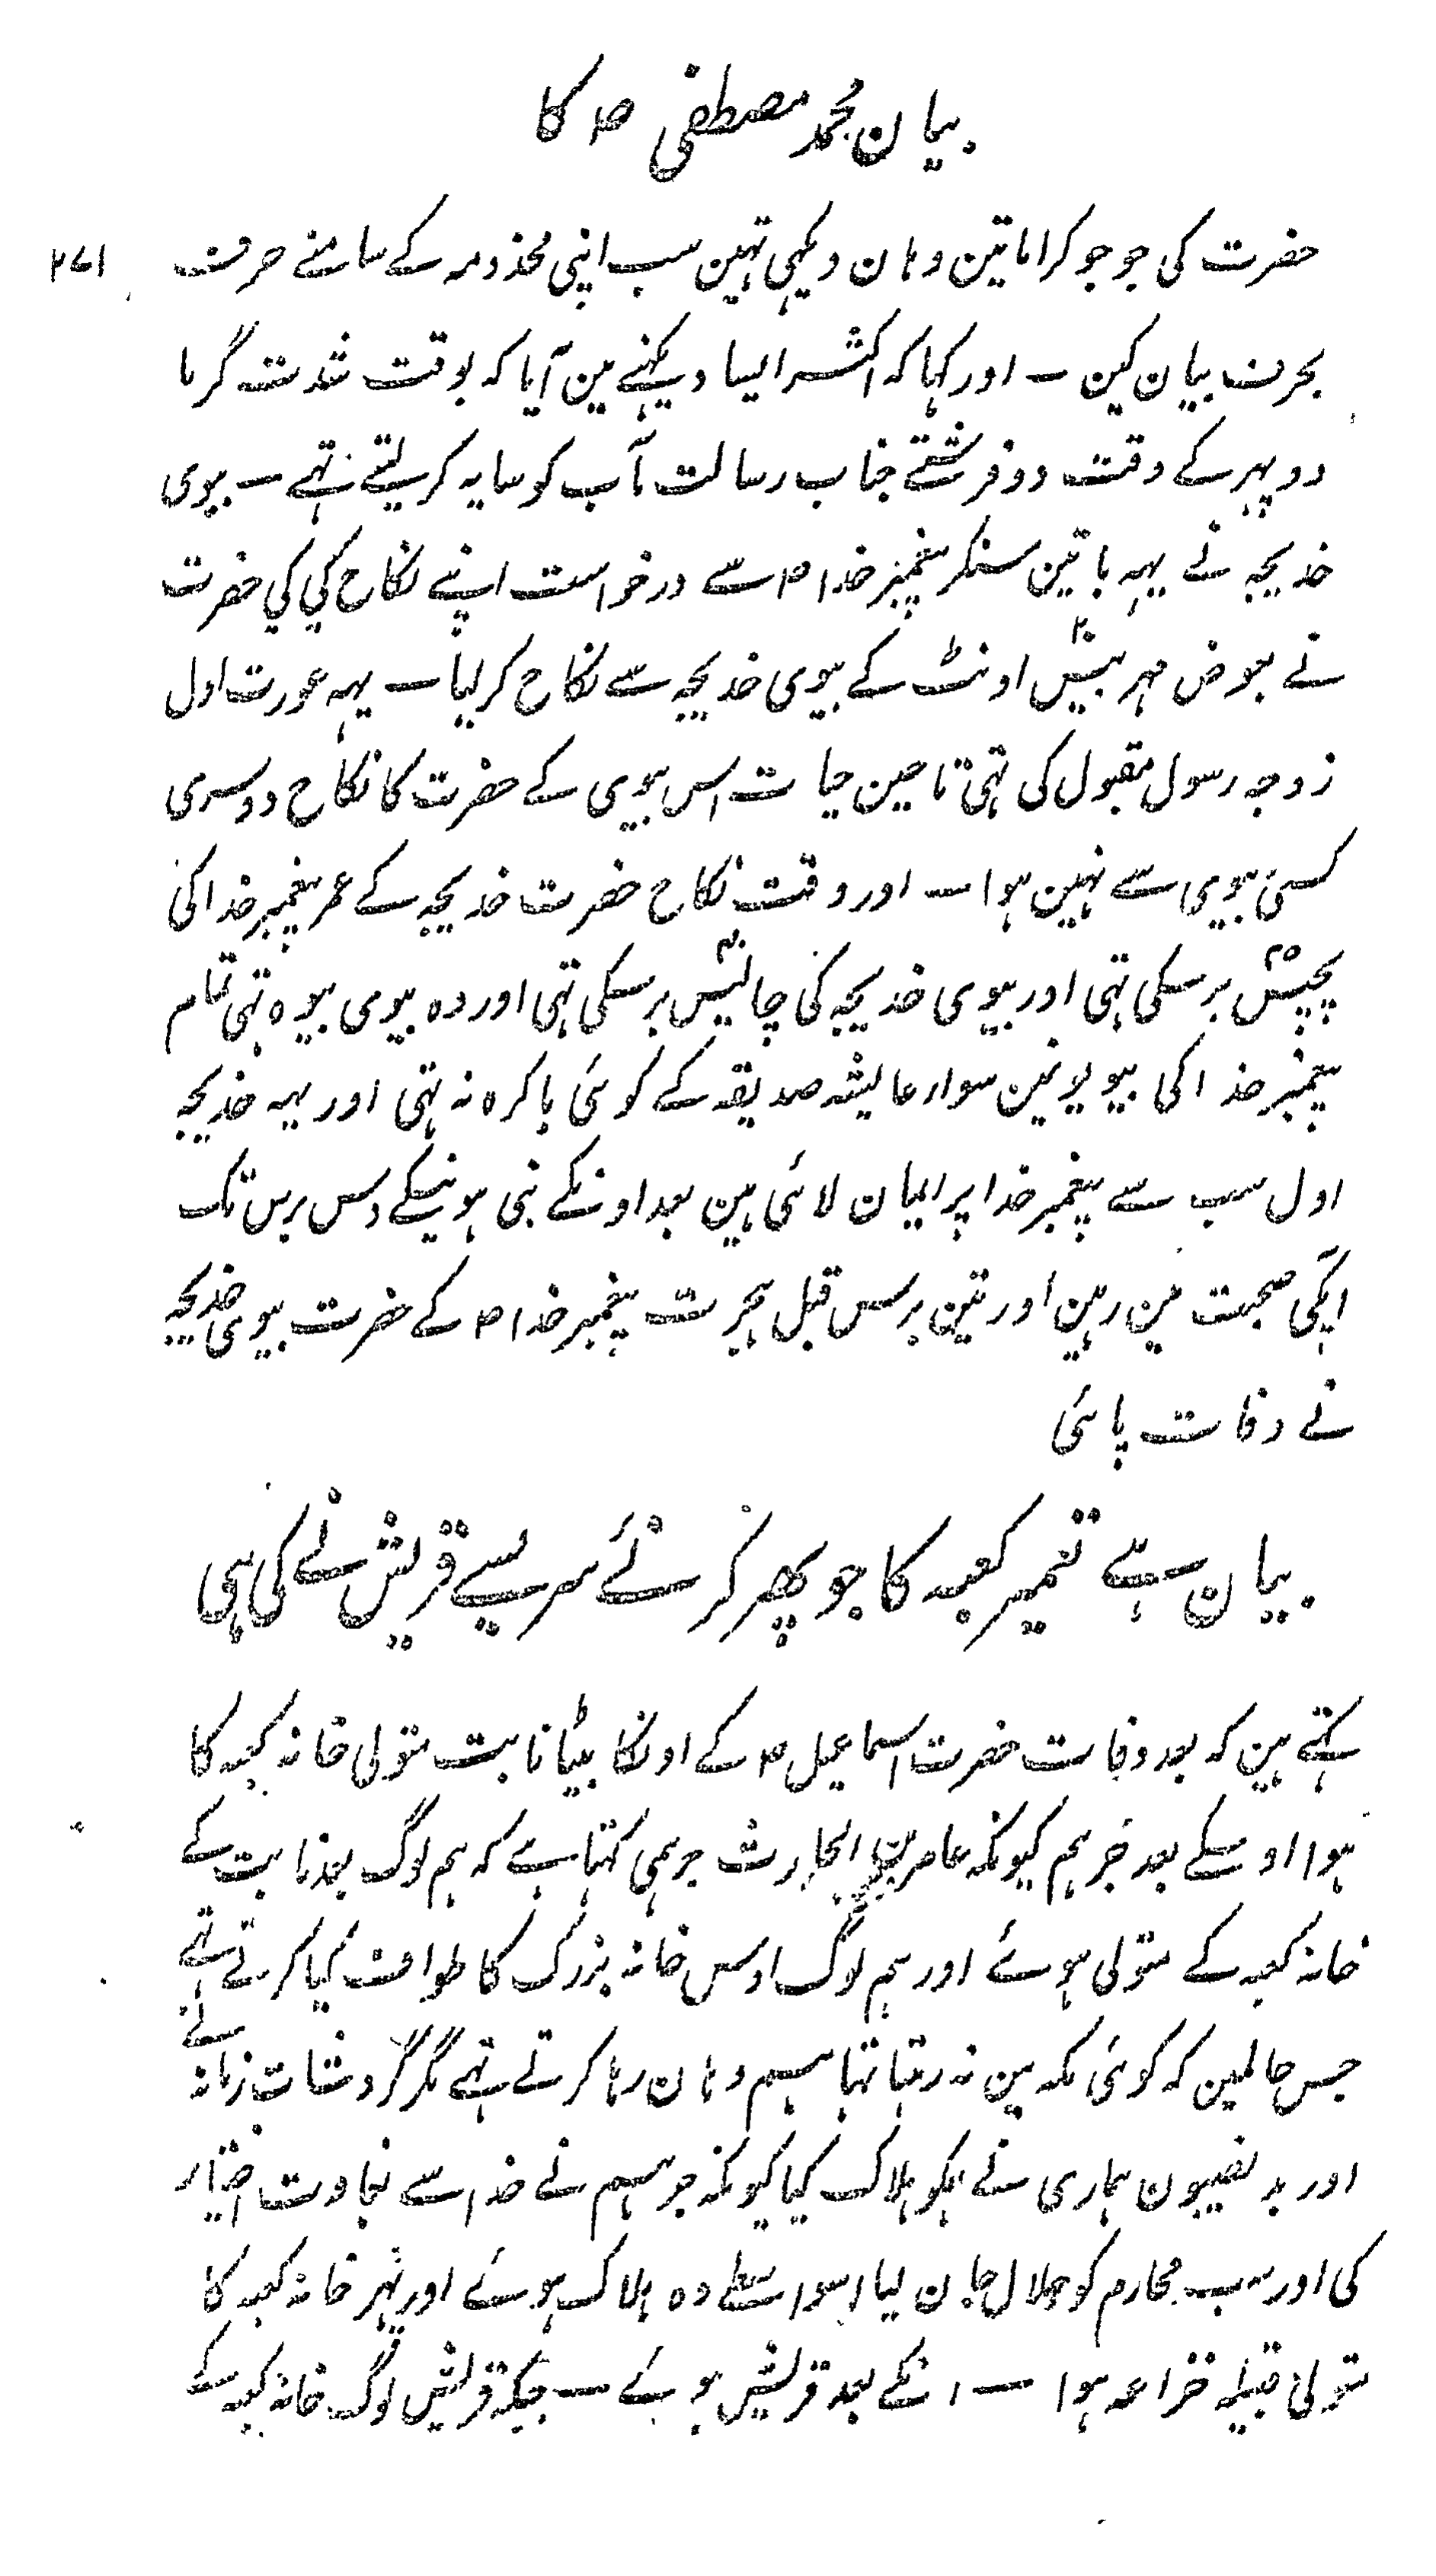 بیان محمد مصطفی ص کا
۲۷۱
حضرت کی جو جو کراماتین وہان دیکہی تہین سب اپنی مخذومہ کے سامنے حرف
بحرف بیان کین ۔ اور کہا کہ اکثر ایسا دیکہنے مین آیا کہ بوقت شدت گرما
دوپہر کے وقت دو فرشتے جناب رسالت مآب کو سایہ کر لیتے تہے ۔ بیوی
خدیجہ نے یہہ باتین سنکر پیغمبر خدا ص سے درخواست اپنے نکاح کی کی حضرت
نے بعوض مہر بیس ۲۰ اونٹ کے بیوی خدیجہ سے نکاح کر لیا ۔ یہہ عورت اول
زوجہ رسول مقبول کی تہی تا حین حیات اس بیوی کے حضرت کا نکاح دوسری
کسی بیوی سے نہین ہوا ۔ اور وقت نکاح حضرت خدیجہ کے عمر پیغمبر خدا کی
پچیس ۲۵ برسکی تہی اور بیوی خدیجہ کی چالیس ۴۰ برسکی تہی اور وہ بیوی بیوہ تہی تمام
پیغمبر خدا کی بیویونمین سوار عایشہ صدیقہ کے کوئی باکرہ نہ تہی اور یہہ خدیجہ
اول سب سے پیغمبر خدا پر ایمان لائی ہین بعد اونکے نبی ہونیکے دس برس تک
اپکی صحبت مین رہین اور تین برس قبل ہجرت پیغمبر خدا ص کے حضرت بیوی خدیجہ
نے وفات پائی
بیان ہے تعمیر کعبہ کا جو پھر کر نئے سر سے قریش نے کی ہی
کہتے ہین کہ بعد وفات حضرت اسماعیل ع کے اونکا بیٹا نابت متولی خانہ کعبہ کا
ہوا اوسکے بعد جرہم کیونکہ عامر بن الحارث جرہمی کہتا ہے کہ ہم لوگ بعد نابت کے
خانہ کعبہ کے متولی ہوئے اور ہم لوگ اوس خانہ بزرگ کا طواف کیا کرتے تہے
جس حالمین کہ کوئی مکہ مین نہ رہتا تہا ہم وہان رہا کرتے تہے مگر گردشات زمانہ نے
اور بد نصیبون ہماری نے ہمکو ہلاک کیا کیونکہ جرہم نے خدا سے بغاوت اختیار
کی اور سب محارم کو حلال جان لیا اسواسطے وہ ہلاک ہوئے اور پہر خانہ کعبہ کا
متولی قبیلہ خزاعہ ہوا ۔ انکے بعد قریش ہوئے ۔ جبکہ قریش لوگ خانہ کعبہ کے